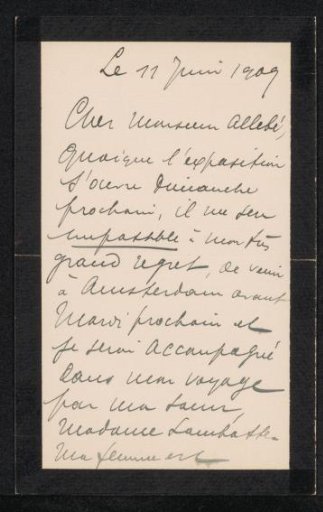 Le 11 Juin 1909
Cher Monsieur Allebé,
Quoique l'exposition
s'ouvre Dimanche
prochain, il me sera
impossible à mon très
grand regret, de venir
à Amsterdam avant
Mardi prochain et
je serai accompagné
dans mon voyage
par ma sœur,
Madame
Ma femme est